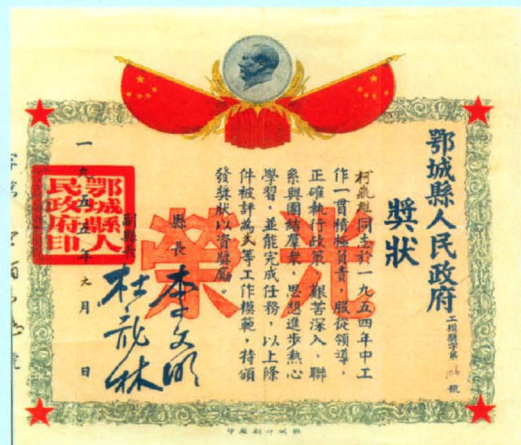 鄂城縣人民政府
獎狀
工模獎字第 號
柯 同志於一九五四年中工
作一貫積極負責，服從領導，
正確執行政策，艱苦深入，聯
系與團結羣衆，思想進步熱心
學習，並能完成任務，以上條
件被評為弍等工作模範，特頒
發獎狀以資獎勵。
光榮
縣長 李文
副縣長 杜 林
一九五五年 月 日
鄂城縣人民政府印